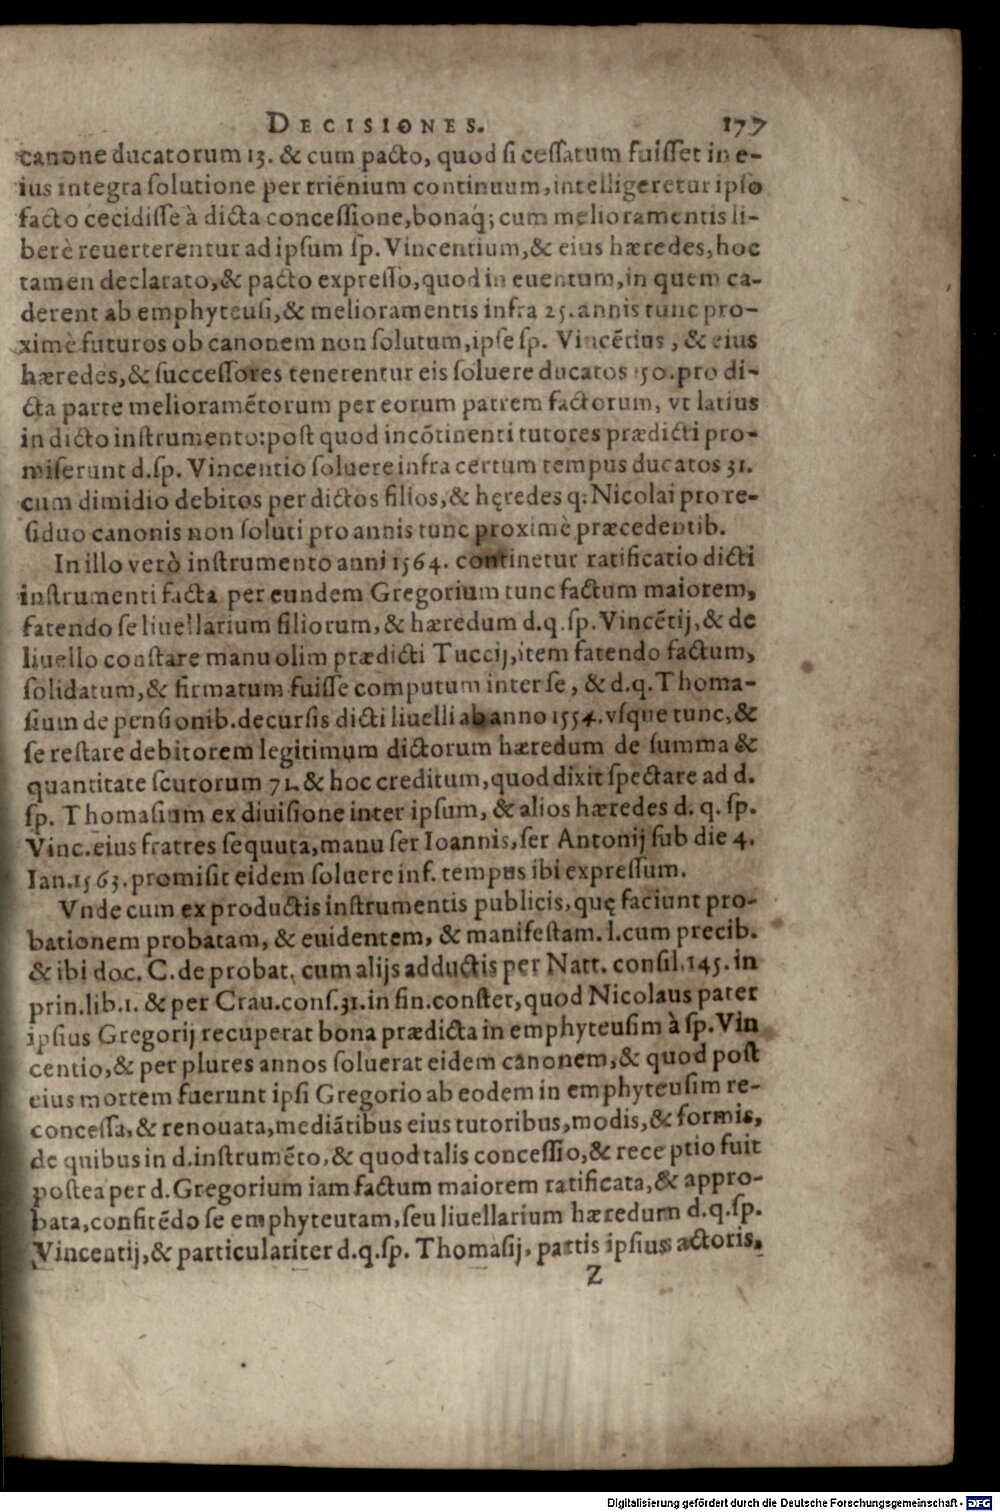 DECISIONES. 177
canone ducatorum 13. & cum pacto, quod si cessatum fuisset in e-
ius integra solutione per triēnium continuum, intelligeretur ipso
facto cecidisse à dicta concessione, bonaq́; cum melioramentis li-
berè reuerterentur ad ipsum sp. Vincentium, & eius hæredes, hoc
tamen declarato, & pacto expresso, quod in euentum, in quem ca-
derent ab emphyteusi, & melioramentis infra 25. annis tunc pro-
ximè futuros ob canonem non solutum, ipse sp. Vincētius, & eius
hæredes, & successores tenerentur eis soluere ducatos 150. pro di-
cta parte melioramētorum per eorum patrem factorum, vt latius
in dicto instrumento: post quod incōtinenti tutores prædicti pro-
miserunt d. sp. Vincentio soluere infra certum tempus ducatos 31.
cum dimidio debitos per dictos filios, & hęredes q: Nicolai pro re-
siduo canonis non soluti pro annis tunc proximè præcedentib.
In illo verò instrumento anni 1564. continetur ratificatio dicti
instrumenti facta per eundem Gregorium tunc factum maiorem,
fatendo se liuellarium filiorum, & hæredum d. q. sp. Vincētij, & de
liuello constare manu olim prædicti Tuccij, item fatendo factum,
solidatum, & firmatum fuisse computum inter se, & d. q. Thoma-
sium de pensionib. decursis dicti liuelli ab anno 1554. vsque tunc, &
se restare debitorem legitimum dictorum hæredum de summa &
quantitate scutorum 71. & hoc creditum, quod dixit spectare ad d.
sp. Thomasium ex diuisione inter ipsum, & alios hæredes d. q. sp.
Vinc. eius fratres sequuta, manu ser Ioannis, ser Antonij sub die 4.
Ian. 1563. promisit eidem soluere inf. tempus ibi expressum.
Vnde cum ex productis instrumentis publicis, quę faciunt pro-
bationem probatam, & euidentem, & manifestam. l. cum precib.
& ibi doc. C. de probat. cum alijs adductis per Natt. consil. 145. in
prin. lib. 1. & per Crau. cons. 31. in fin. constet, quod Nicolaus pater
ipsius Gregorij recuperat bona prædicta in emphyteusim à sp. Vin
centio, & per plures annos soluerat eidem canonem, & quod post
eius mortem fuerunt ipsi Gregorio ab eodem in emphyteusim re-
concessa, & renouata, mediātibus eius tutoribus, modis, & formis,
de quibus in d. instrumēto, & quod talis concessio, & receptio fuit
postea per d. Gregorium iam factum maiorem ratificata, & appro-
bata, confitēdo se emphyteutam, seu liuellarium hæredum d. q. sp.
Vincentij, & particulariter d. q. sp. Thomasij, partis ipsius actoris.
Z
Digitalisierung gefördert durch die Deutsche Forschungsgemeinschaft - DFG